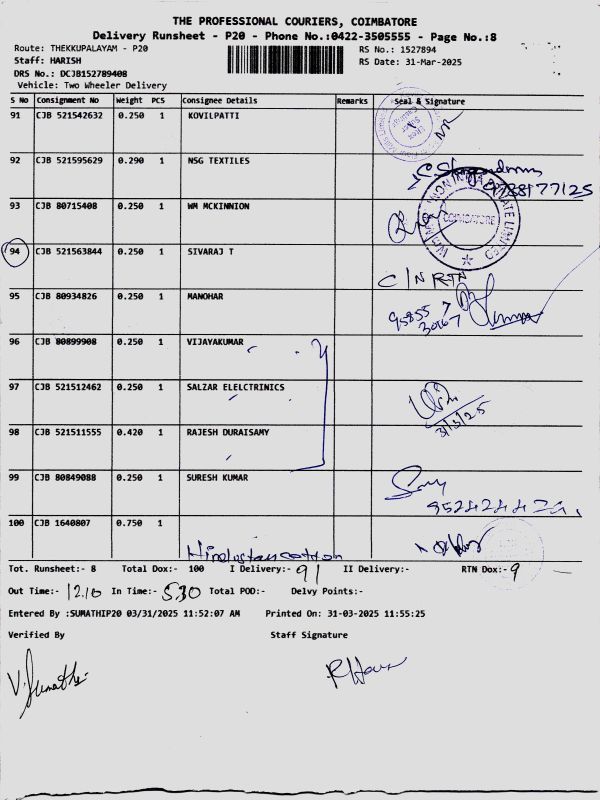 THE PROFESSIONAL COURIERS, COIMBATORE
Delivery Runsheet - P20 - Phone No.:0422-3505555 - Page No.:8
Route: THEKKUPALAYAM - P20 RS No.: 1527894
Staff: HARISH RS Date: 31-Mar-2025
DRS No.: DCJB152789408
Vehicle: Two Wheeler Delivery
S No Consignment No Weight PCS Consignee Details Remarks Seal & Signature
91 CJB 521542632 0.250 1 KOVILPATTI
92 CJB 521595629 0.290 1 NSG TEXTILES
9788177125
93 CJB 80715408 0.250 1 WM MCKINNION
COIMBATORE
94 CJB 521563844 0.250 1 SIVARAJ T
C/N RTN
95 CJB 80934826 0.250 1 MANOHAR
95855
30167
96 CJB 80899908 0.250 1 VIJAYAKUMAR
97 CJB 521512462 0.250 1 SALZAR ELELCTRINICS
98 CJB 521511555 0.420 1 RAJESH DURAISAMY
3/3/25
99 CJB 80849088 0.250 1 SURESH KUMAR
100 CJB 1640807 0.750 1
Hindustan cotton
Tot. Runsheet:- 8 Total Dox:- 100 I Delivery:- 91 II Delivery:- RTN Dox:- 9
Out Time:- 12.10 In Time:- 5.30 Total POD:- Delvy Points:-
Entered By :SUMATHIP20 03/31/2025 11:52:07 AM Printed On: 31-03-2025 11:55:25
Verified By Staff Signature
V. Sumathi